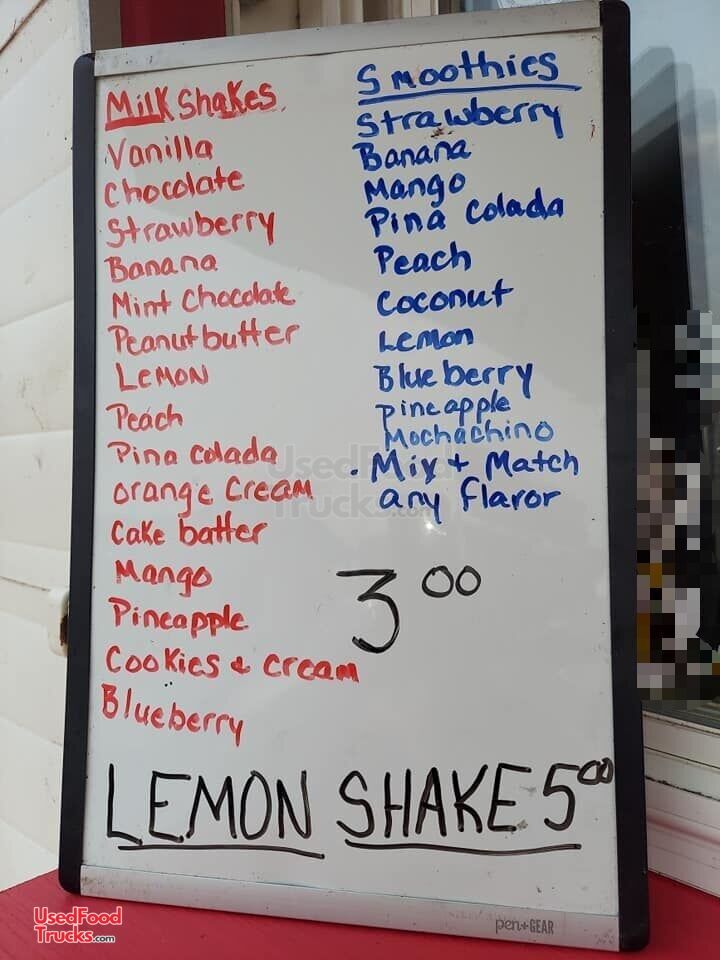 Milkshakes
Vanilla
Chocolate
Strawberry
Banana
Mint Chocolate
Peanutbutter
LEMON
Peach
Pina Colada
orange Cream
Cake batter
Mango
Pineapple
Cookies & cream
Blueberry
Smoothies
Strawberry
Banana
Mango
Pina Colada
Peach
Coconut
Lemon
Blueberry
Pineapple
Mochachino
. Mix + Match
any flaror
3 00
LEMON SHAKE 5 00
UsedFood
Trucks.com
pen+GEAR
UsedFood
Trucks.com